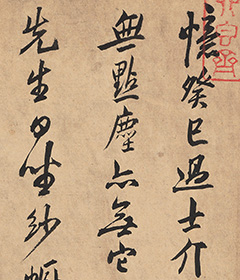 憶癸巳過士介
無點塵亦無它
先生日坐紗